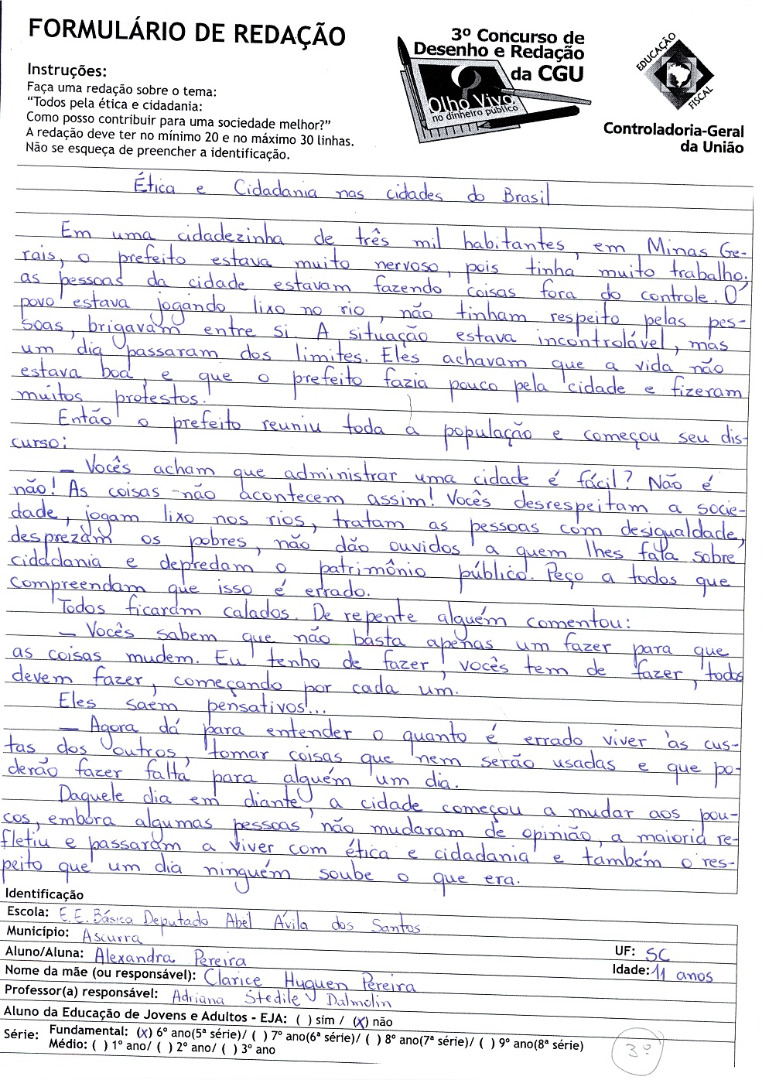 FORMULÁRIO DE REDAÇÃO
3º Concurso de
Desenho e Redação
da CGU
Olho Vivo
no dinheiro público
EDUCAÇÃO
FISCAL
Controladoria-Geral
da União
Instruções:
Faça uma redação sobre o tema:
"Todos pela ética e cidadania:
Como posso contribuir para uma sociedade melhor?"
A redação deve ter no mínimo 20 e no máximo 30 linhas.
Não se esqueça de preencher a identificação.
Ética e Cidadania nas cidades do Brasil
Em uma cidadezinha de três mil habitantes, em Minas Ge-
rais, o prefeito estava muito nervoso, pois tinha muito trabalho,
as pessoas da cidade estavam fazendo coisas fora do controle. O
povo estava jogando lixo no rio, não tinham respeito pelas pes-
soas, brigavam entre si. A situação estava incontrolável, mas
um dia passaram dos limites. Eles achavam que a vida não
estava boa, e que o prefeito fazia pouco pela cidade e fizeram
muitos protestos.
Então o prefeito reuniu toda a população e começou seu dis-
curso:
– Vocês acham que administrar uma cidade é fácil? Não é
não! As coisas não acontecem assim! Vocês desrespeitam a socie-
dade, jogam lixo nos rios, tratam as pessoas com desigualdade,
desprezam os pobres, não dão ouvidos a quem lhes fala sobre
cidadania e depredam o patrimônio público. Peço a todos que
compreendam que isso é errado.
Todos ficaram calados. De repente alguém comentou:
– Vocês sabem que não basta apenas um fazer para que
as coisas mudem. Eu tenho de fazer, vocês tem de fazer, todos
devem fazer, começando por cada um.
Eles saem pensativos...
– Agora dá para entender o quanto é errado viver às cus-
tas dos outros, tomar coisas que nem serão usadas e que po-
derão fazer falta para alguém um dia.
Daquele dia em diante, a cidade começou a mudar aos pou-
cos, embora algumas pessoas não mudaram de opinião, a maioria re-
fletiu e passaram a viver com ética e cidadania e também o res-
peito que um dia ninguém soube o que era.
Identificação
Escola: E.E.Básica Deputado Abel Ávila dos Santos
Município: Ascurra
UF: SC
Aluno/Aluna: Alexandra Pereira
Idade: 11 anos
Nome da mãe (ou responsável): Clarice Huguen Pereira
Professor(a) responsável: Adriana Stedile Dalmolin
Aluno da Educação de Jovens e Adultos - EJA: ( ) sim / (x) não
Série: Fundamental: (x) 6º ano(5ª série)/ ( ) 7º ano(6ª série)/ ( ) 8º ano(7ª série)/ ( ) 9º ano(8ª série)
Médio: ( ) 1º ano/ ( ) 2º ano/ ( ) 3º ano
3º